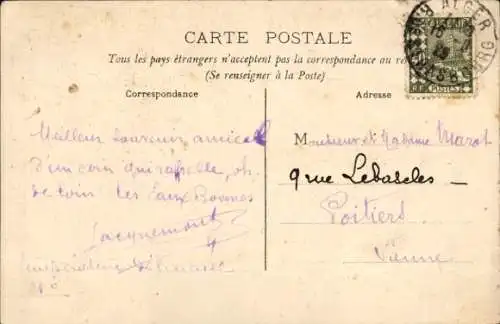 CARTE POSTALE
Tous les pays étrangers n'acceptent pas la correspondance au
(Se renseigner à la Poste)
Correspondance
Adresse
ALGER
POSTES
Meilleur souvenir amical
D'un coin qui rappelle, oh,
de loin les Eaux Bonnes
Jacquemont
Monsieur et Madame Marot
9 rue Lebascles
Poitiers
Vienne